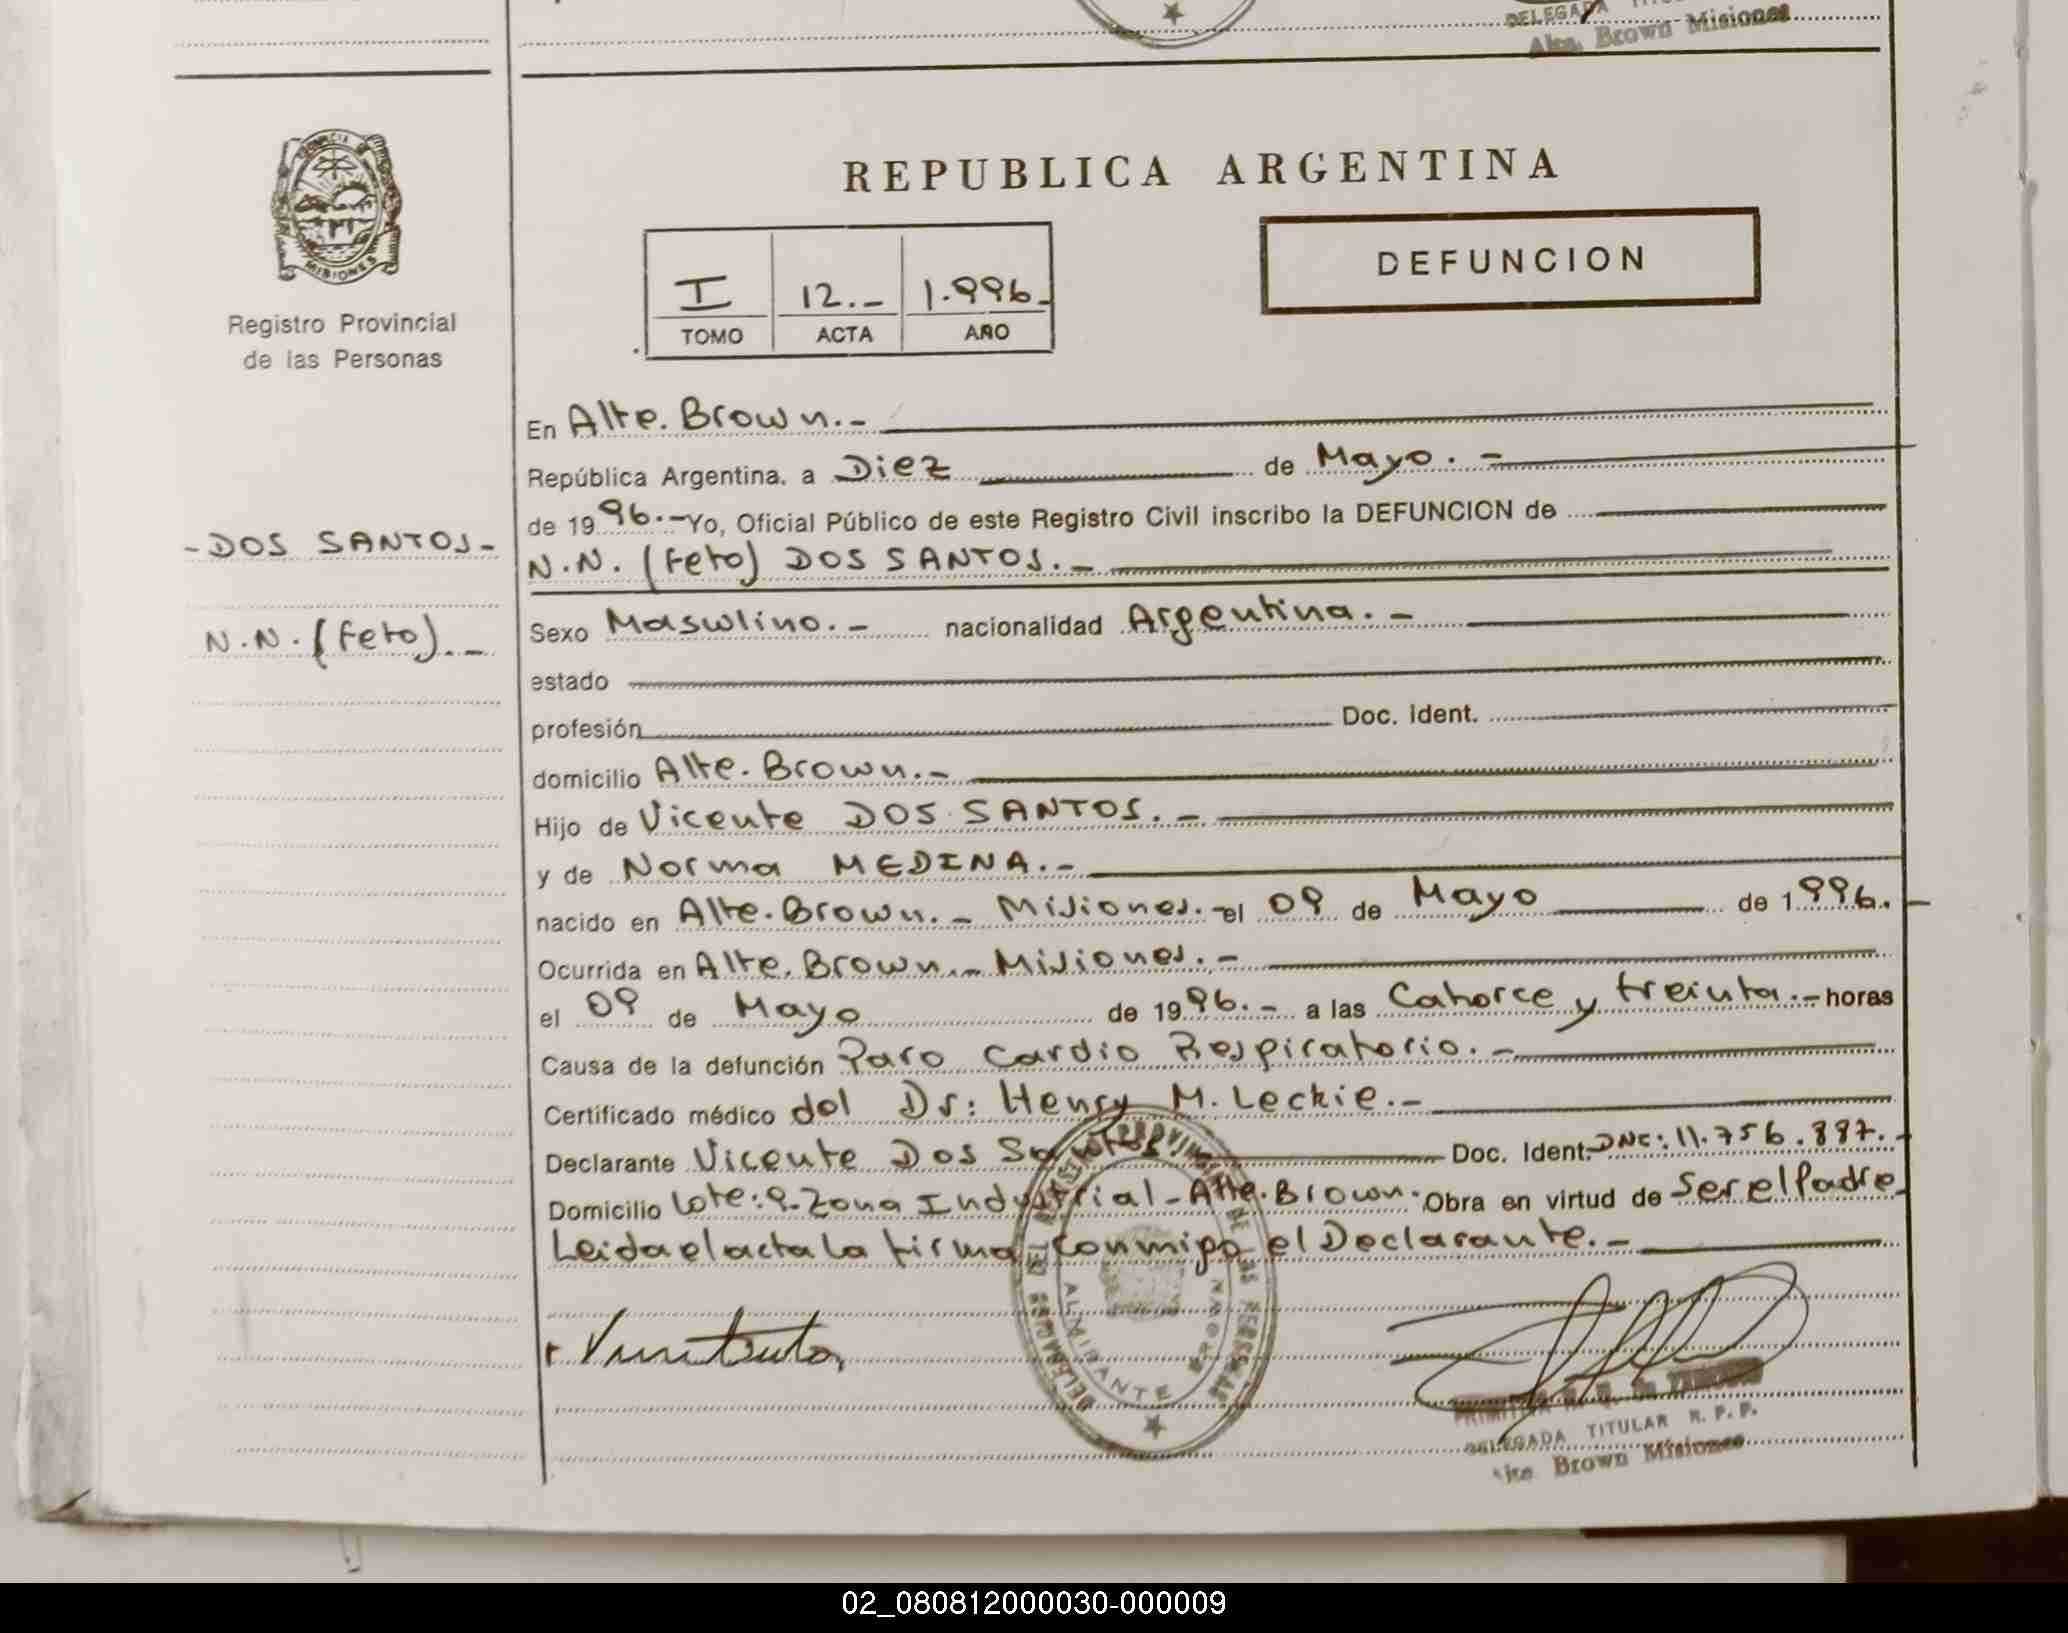 DELEGADA
Alte. Brown Misiones
PROVINCIA DE
MISIONES
Registro Provincial
de las Personas
REPUBLICA ARGENTINA
I 12.- 1.996.
TOMO ACTA AÑO
DEFUNCION
En Alte. Brown.-
República Argentina, a Diez de Mayo.-
de 19 96.- Yo, Oficial Público de este Registro Civil inscribo la DEFUNCION de
-DOS SANTOS-
N.N. (Feto) DOS SANTOS.-
N.N. (Feto).-
Sexo Masculino.- nacionalidad Argentina.-
estado
profesión Doc. Ident.
domicilio Alte. Brown.-
Hijo de Vicente DOS SANTOS.-
y de Norma MEDINA.-
nacido en Alte. Brown.- Misiones.- el 09 de Mayo de 1996.-
Ocurrida en Alte. Brown.- Misiones.-
el 09 de Mayo de 1996.- a las Catorce y treinta.- horas
Causa de la defunción Paro Cardio Respiratorio.-
Certificado médico del Dr: Henry M. Leckie.-
Declarante Vicente Dos Santos Doc. Ident. DNI: 11.756.887.-
Domicilio Lote: 9- Zona Industrial - Alte. Brown. Obra en virtud de Ser el Padre
Leida el acta la firma conmigo el Declarante.-
DELEGACION DEL REGISTRO PROVINCIAL DE LAS PERSONAS
ALMIRANTE BROWN
DELEGADA TITULAR R. P. P.
Alte. Brown Misiones
02_080812000030-000009